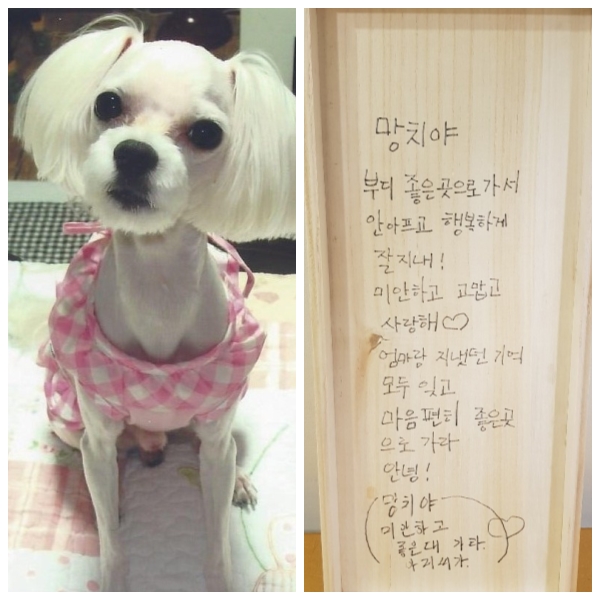 망치야
부디 좋은곳으로가서
안아프고 행복하게
잘지내!
미안하고 고맙고
사랑해♡
엄마랑 지냈던 기억
모두 잊고
마음편히 좋은곳
으로 가라
안녕!
망치야
미안하고
좋은대 가라.